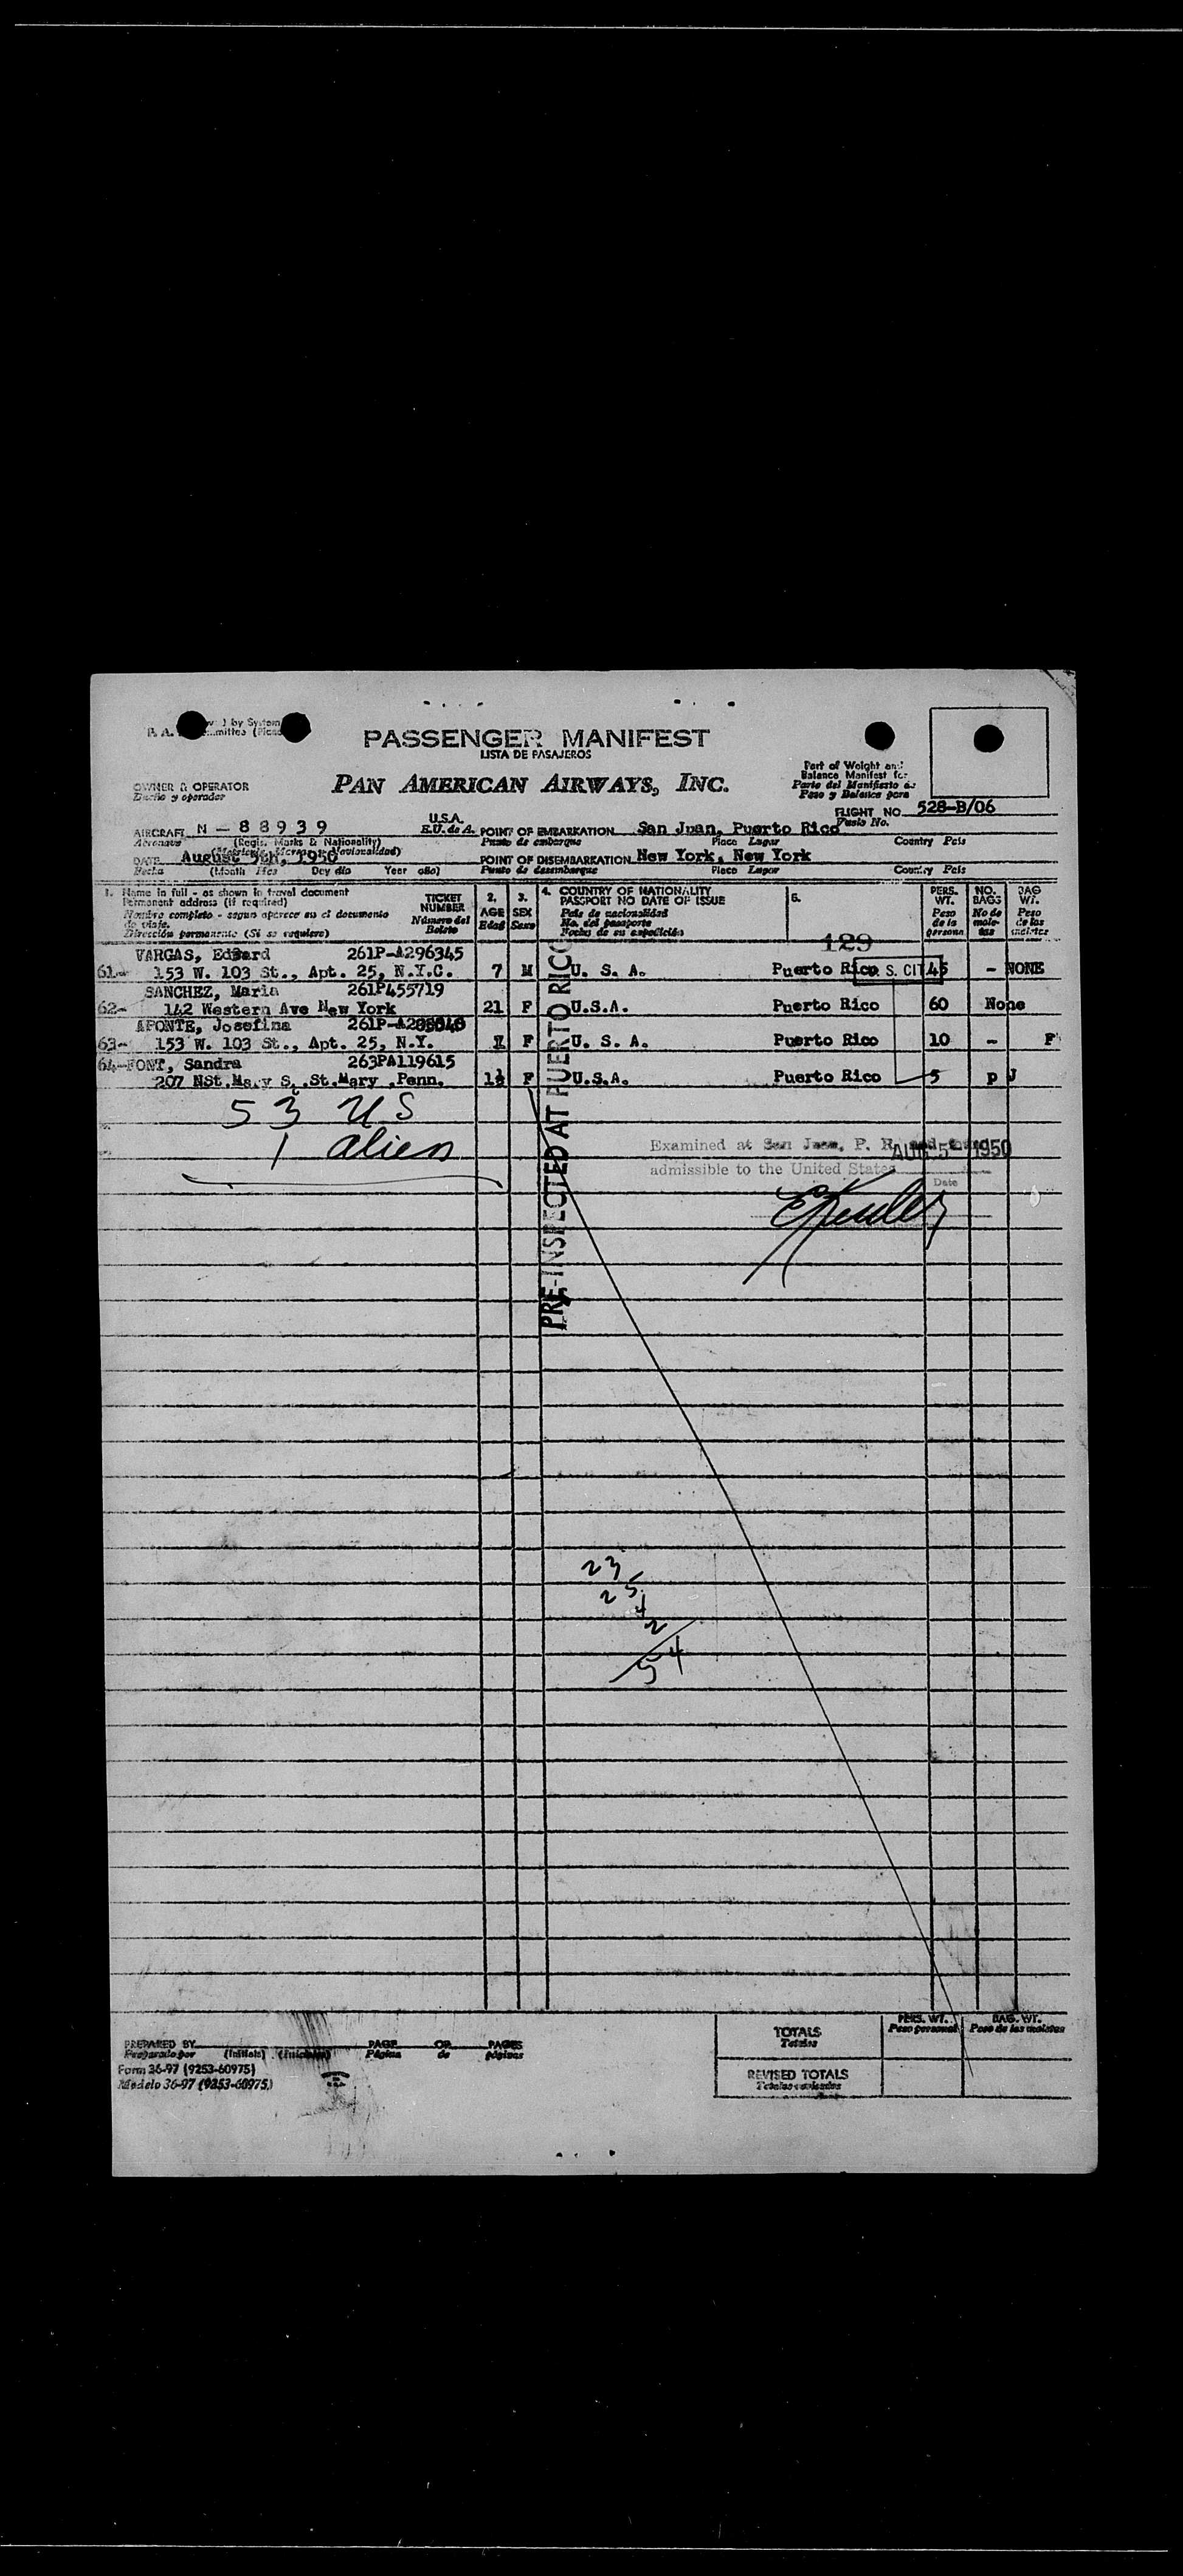 PASSENGER MANIFEST
LISTA DE PASAJEROS
PAN AMERICAN AIRWAYS, INC.
OWNER & OPERATOR
Dueño y operador
Part of Weight and
Balance Manifest for
Parte del Manifiesto de
Peso y Balance para
FLIGHT NO. 528-B/06
Vuelo No.
AIRCRAFT N - 8 8 9 3 9 U.S.A.
E.U. de A.
Aeronave (Regis. Marks & Nationality)
POINT OF EMBARKATION San Juan, Puerto Rico
Punto de embarque Place Lugar Country País
DATE August 5th, 1950
Fecha (Month Mes Day día Year año)
POINT OF DISEMBARKATION New York, New York
Punto de desembarque Place Lugar Country País
1. Name in full - as shown in travel document
Permanent address (if required)
Nombre completo - segun aparece en el documento
de viaje.
Dirección permanente (Si se requiere)
TICKET
NUMBER
Número del
Boleto
2.
AGE
Edad
3.
SEX
Sexo
4. COUNTRY OF NATIONALITY
PASSPORT NO DATE OF ISSUE
País de nacionalidad
No. del pasaporte
Fecha de su expedición
5.
PERS.
WT.
Peso
de la
persona
NO.
BAGS
No de
male-
tas
BAG
WT.
Peso
de las
maletas
129
VARGAS, Edward 261P-A296345
61- 153 W. 103 St., Apt. 25, N.Y.C. 7 M U. S. A. Puerto Rico U. S. CIT 45 - NONE
SANCHEZ, Maria 261P455719
62- 142 Western Ave New York 21 F U.S.A. Puerto Rico 60 None
APONTE, Josefina 261P-
63- 153 W. 103 St., Apt. 25, N.Y. F U. S. A. Puerto Rico 10 - F
64-FONT, Sandra 263PA119615
207 NSt.Mary S. .St.Mary ,Penn. 1½ F U.S.A. Puerto Rico 5 P J
53 US
1 alien
PRE-INSPECTED AT PUERTO RICO
Examined at San Juan, P. R. and found AUG 5 1950
admissible to the United States
Date
23
25
4
2
54
PREPARED BY
Preparado por (Initials) (Iniciales)
PAGE OF PAGES
Página de páginas
Form 36-97 (9253-60975)
Modelo 36-97 (9253-60975)
PERS. WT. BAG. WT.
Peso personal Peso de las maletas
TOTALS
Totales
REVISED TOTALS
Totales revisados